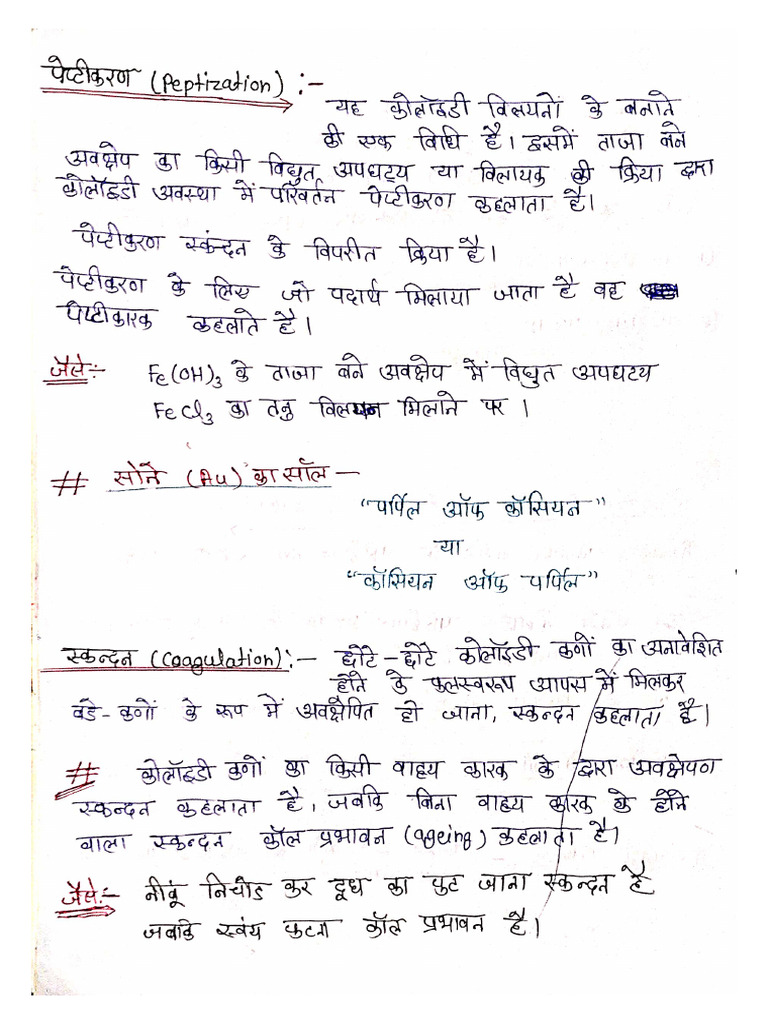 पेप्टीकरण (Peptization) :-
यह कोलॉइडी विलयनों के बनाने
की एक विधि है। इसमें ताजा बने
अवक्षेप का किसी विधुत अपघट्य या विलायक की क्रिया द्वारा
कोलॉइडी अवस्था में परिवर्तन पेप्टीकरण कहलाता है।
पेप्टीकरण स्कंन्दन के विपरीत क्रिया है।
पेप्टीकरण के लिए जो पदार्थ मिलाया जाता है वह
पेप्टीकारक कहलाते है।
जैसे:- Fe(OH)₃ के ताजा बने अवक्षेप में विधुत अपघट्य
FeCl₃ का तनु विलयन मिलाने पर ।
# सोने (Au) का सॉल –
"पर्पिल ऑफ कॉसियन"
या
"कॉसियन ऑफ पर्पिल"
स्कन्दन (Coagulation) :- छोटे-छोटे कोलॉइडी कणों का अनावेशित
होने के फलस्वरूप आपस में मिलकर
बडे-कणों के रूप में अवक्षेपित हो जाना, स्कन्दन कहलाता है।
# कोलॉइडी कणों का किसी वाहय कारक के द्वारा अवक्षेपण
स्कन्दन कहलाता है, जबकि बिना वाहय कारक के होने
वाला स्कन्दन कॉल प्रभावन (ageing) कहलाता है।
जैसे:- नीबूं निचोड कर दूध का फुट जाना स्कन्दन है
जबकि स्वंय फुटना कॉल प्रभावन है।